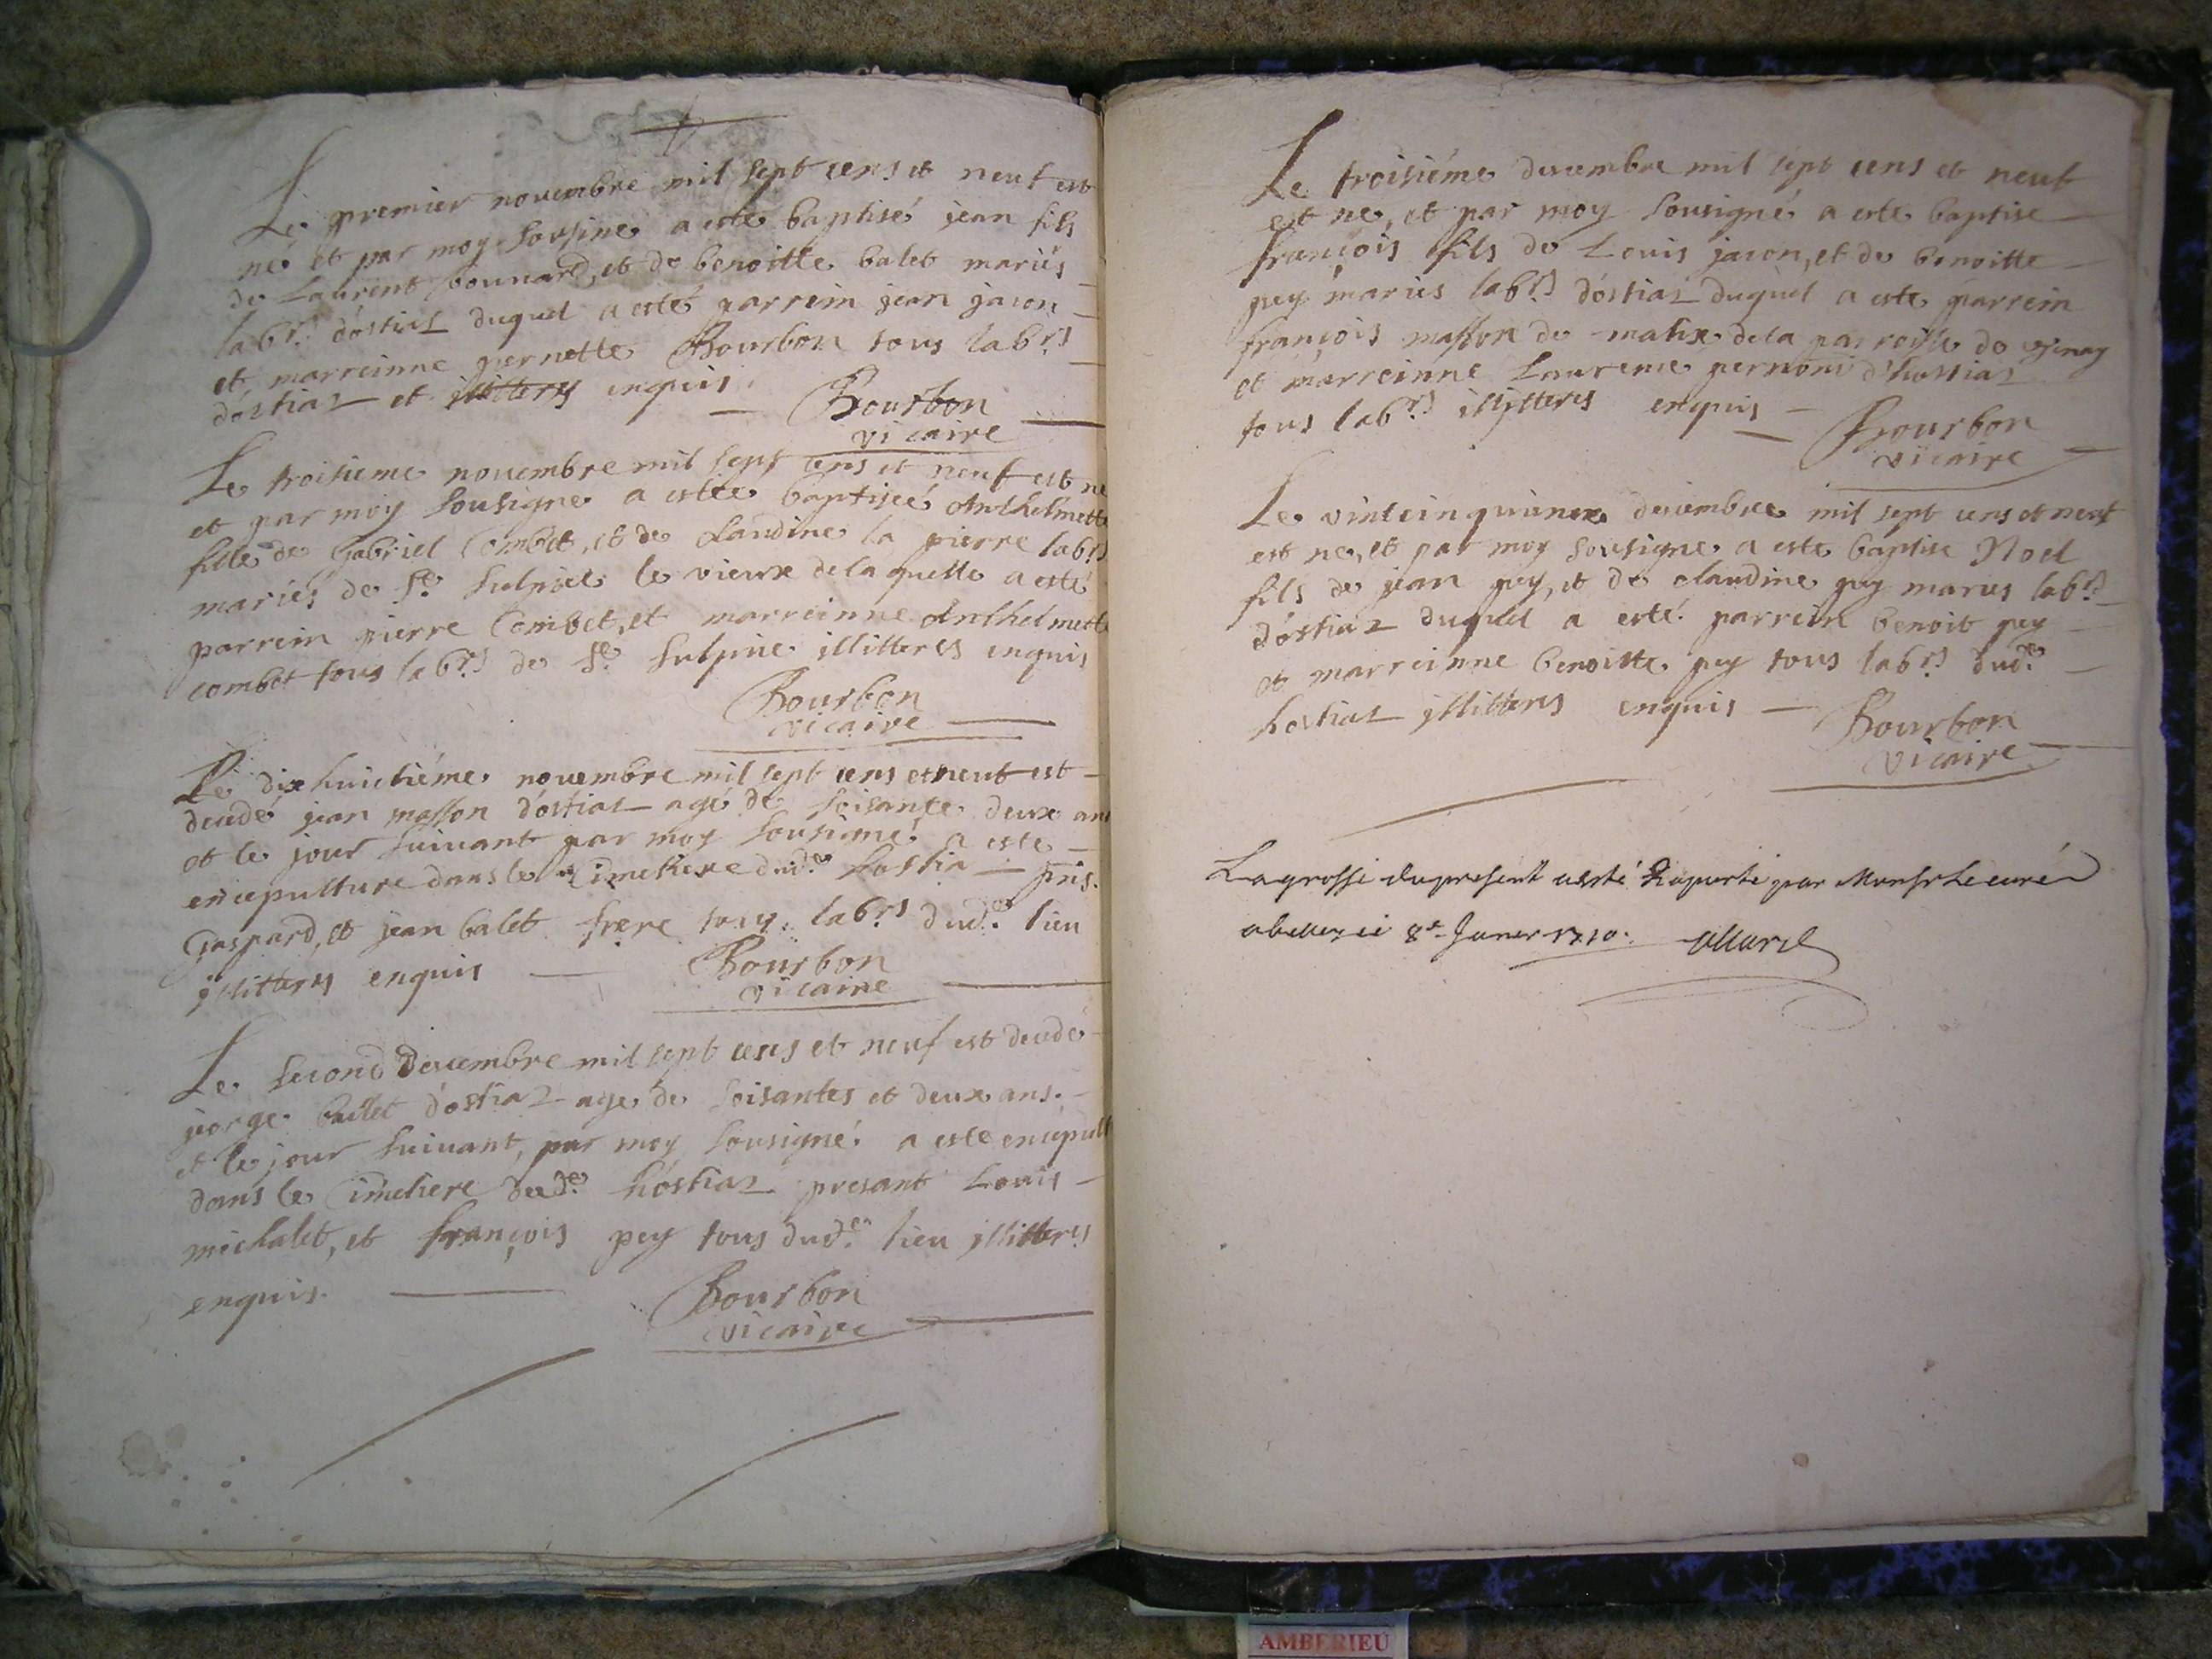 Le premier novembre mil sept cens et neuf est
né et par moy sousine a este baptisé jean fils
de Laurent bonnard, et de benoitte balet mariés
labrs d'ostiaz duquel a esté parrein jean jacon
et marreinne pernette Bourbon tous labrs
d'ostiaz et illitters enquis. Bourbon
vicaire
Le troisieme novembre mil sept cens et neuf est ne
et par moy sousigne a estée baptisée Anthelmette
fille de Gabriel Combet, et de claudine la pierre labrs
mariés de St. Sulpice le vieux de la quelle a esté
parrein pierre Combet, et marreinne Anthelmette
combet tous labrs de St. Sulpice illitteres enquis
Bourbon
vicaire
Le dix huictiéme novembre mil sept cens et neuf est
decedé jean masson d'ostiaz agé de soisante deux ans
et le jour suivant par moy sousigné a este
encepulture dans le Cimetiere dude. hostia pns.
Gaspard, et jean balet frere tous labrs dude. lieu
illitters enquis Bourbon
vicaire
Le second decembre mil sept cens et neuf est decedé
jeorge ballet d'ostiaz age de soisantes et deux ans.
et le jour suivant, par moy sousigné a este encepult
dans le Cimetiere dude. hóstiaz presant Louis
michalet, et françois pey tous dude. lieu illitters
enquis. Bourbon
vicaire
Le troisiéme decembre mil sept cens et neuf
est ne, et par moy sousigné a este baptise
françois fils de Louis jacon, et de benoitte
pey mariés labrs d'ostiaz duquel a este parrein
françois masson de malix de la parroisse de
et marreinne Laurence d'hostiaz
tous labrs illitteres enquis Bourbon
vicaire
Le vintcinquieme decembre mil sept cens et neuf
est ne, et par moy sousigne a este baptise Noel
fils de jean pey, et de claudine pey maries labrs
d'óstiaz duquel a esté parrein benoit pey
et marreinne benoitte pey tous labrs dude.
hostiaz illitters enquis Bourbon
vicaire
La grosse du present aesté Raporté par Monsr Le curé
abelley ce 8e Janer 1710. Allard
AMBERIEU